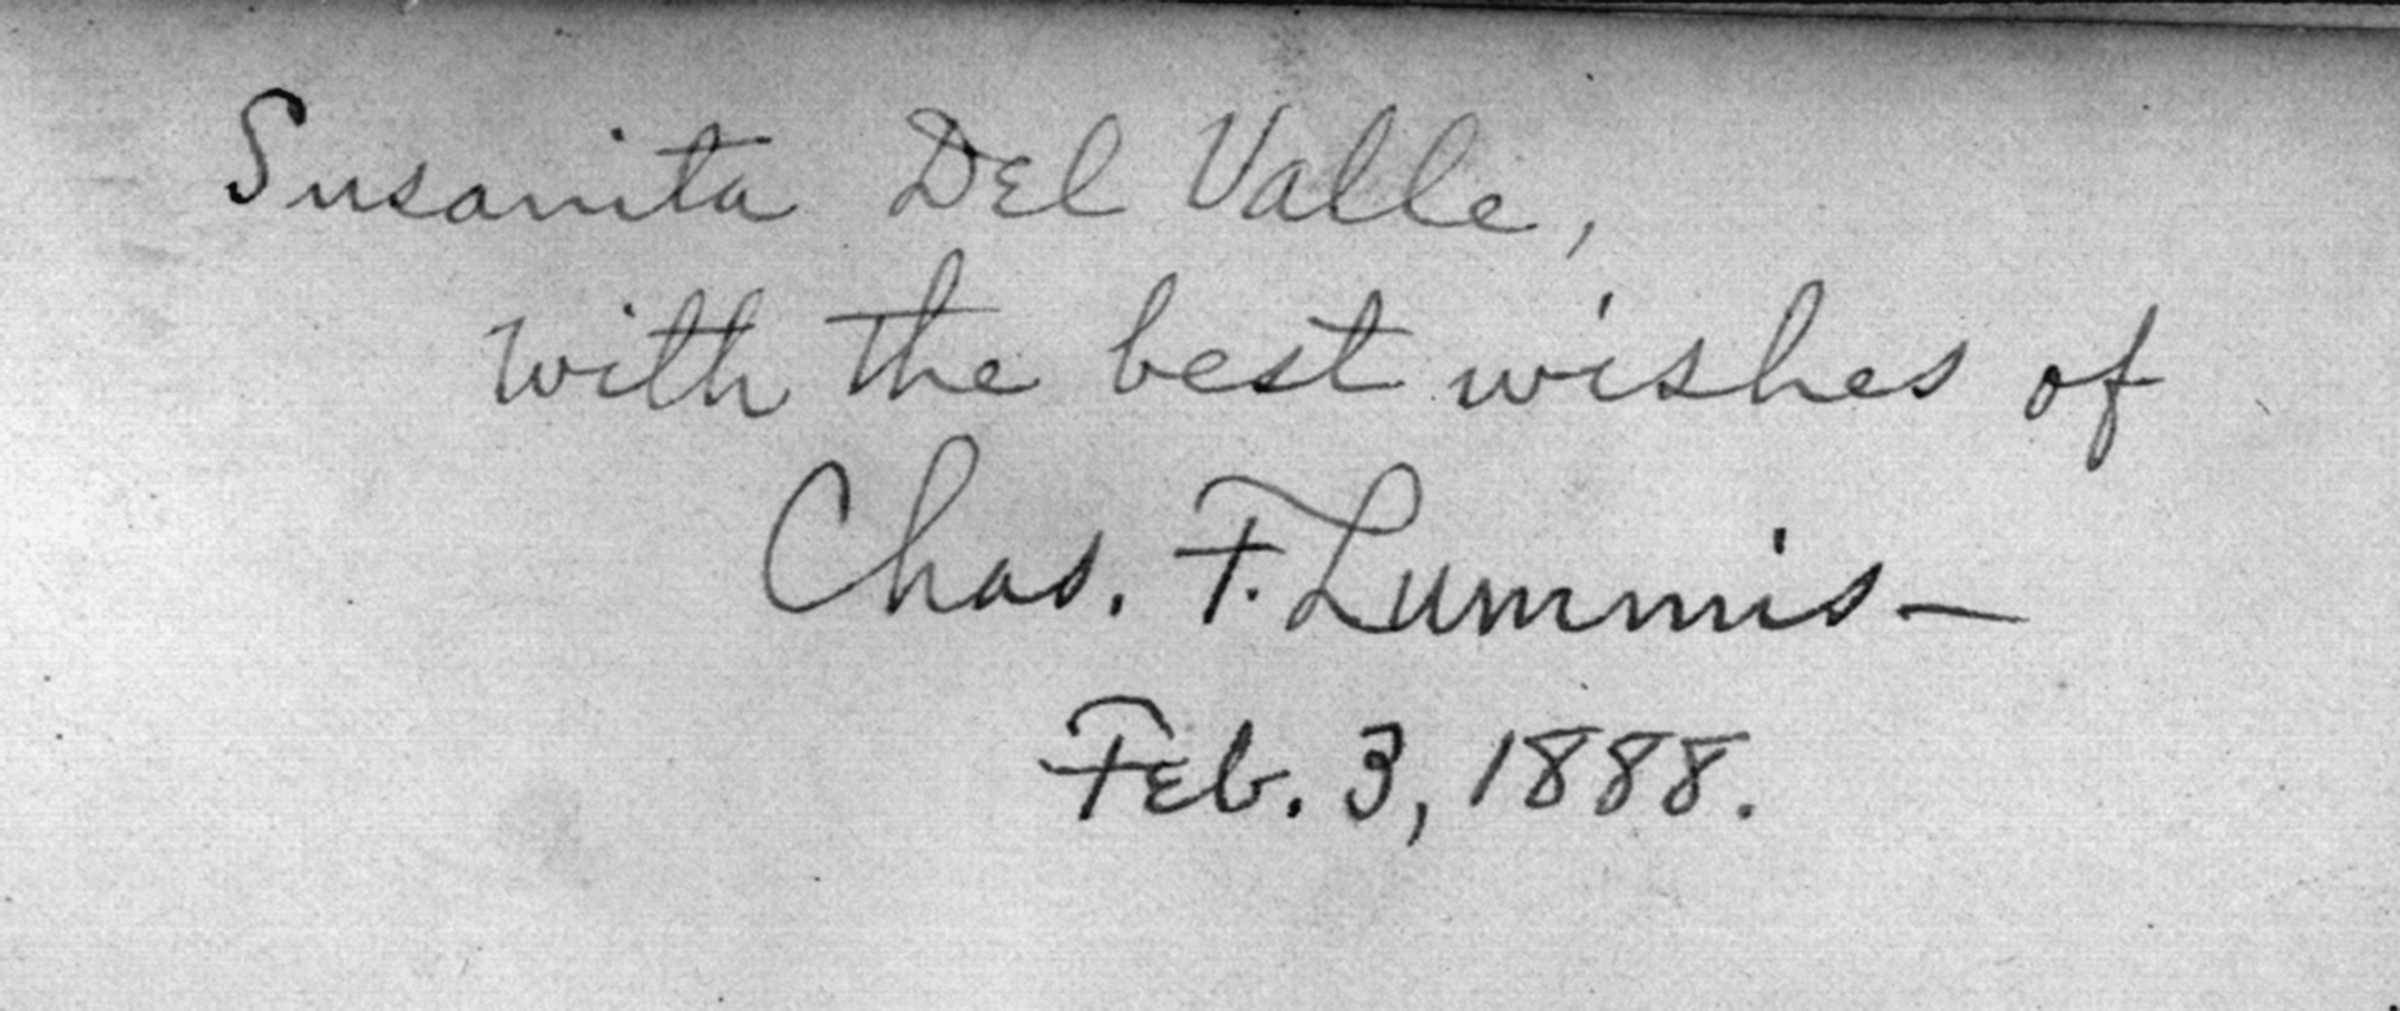 Susanita Del Valle,
with the best wishes of
Chas. F. Lummis—
Feb. 3, 1888.